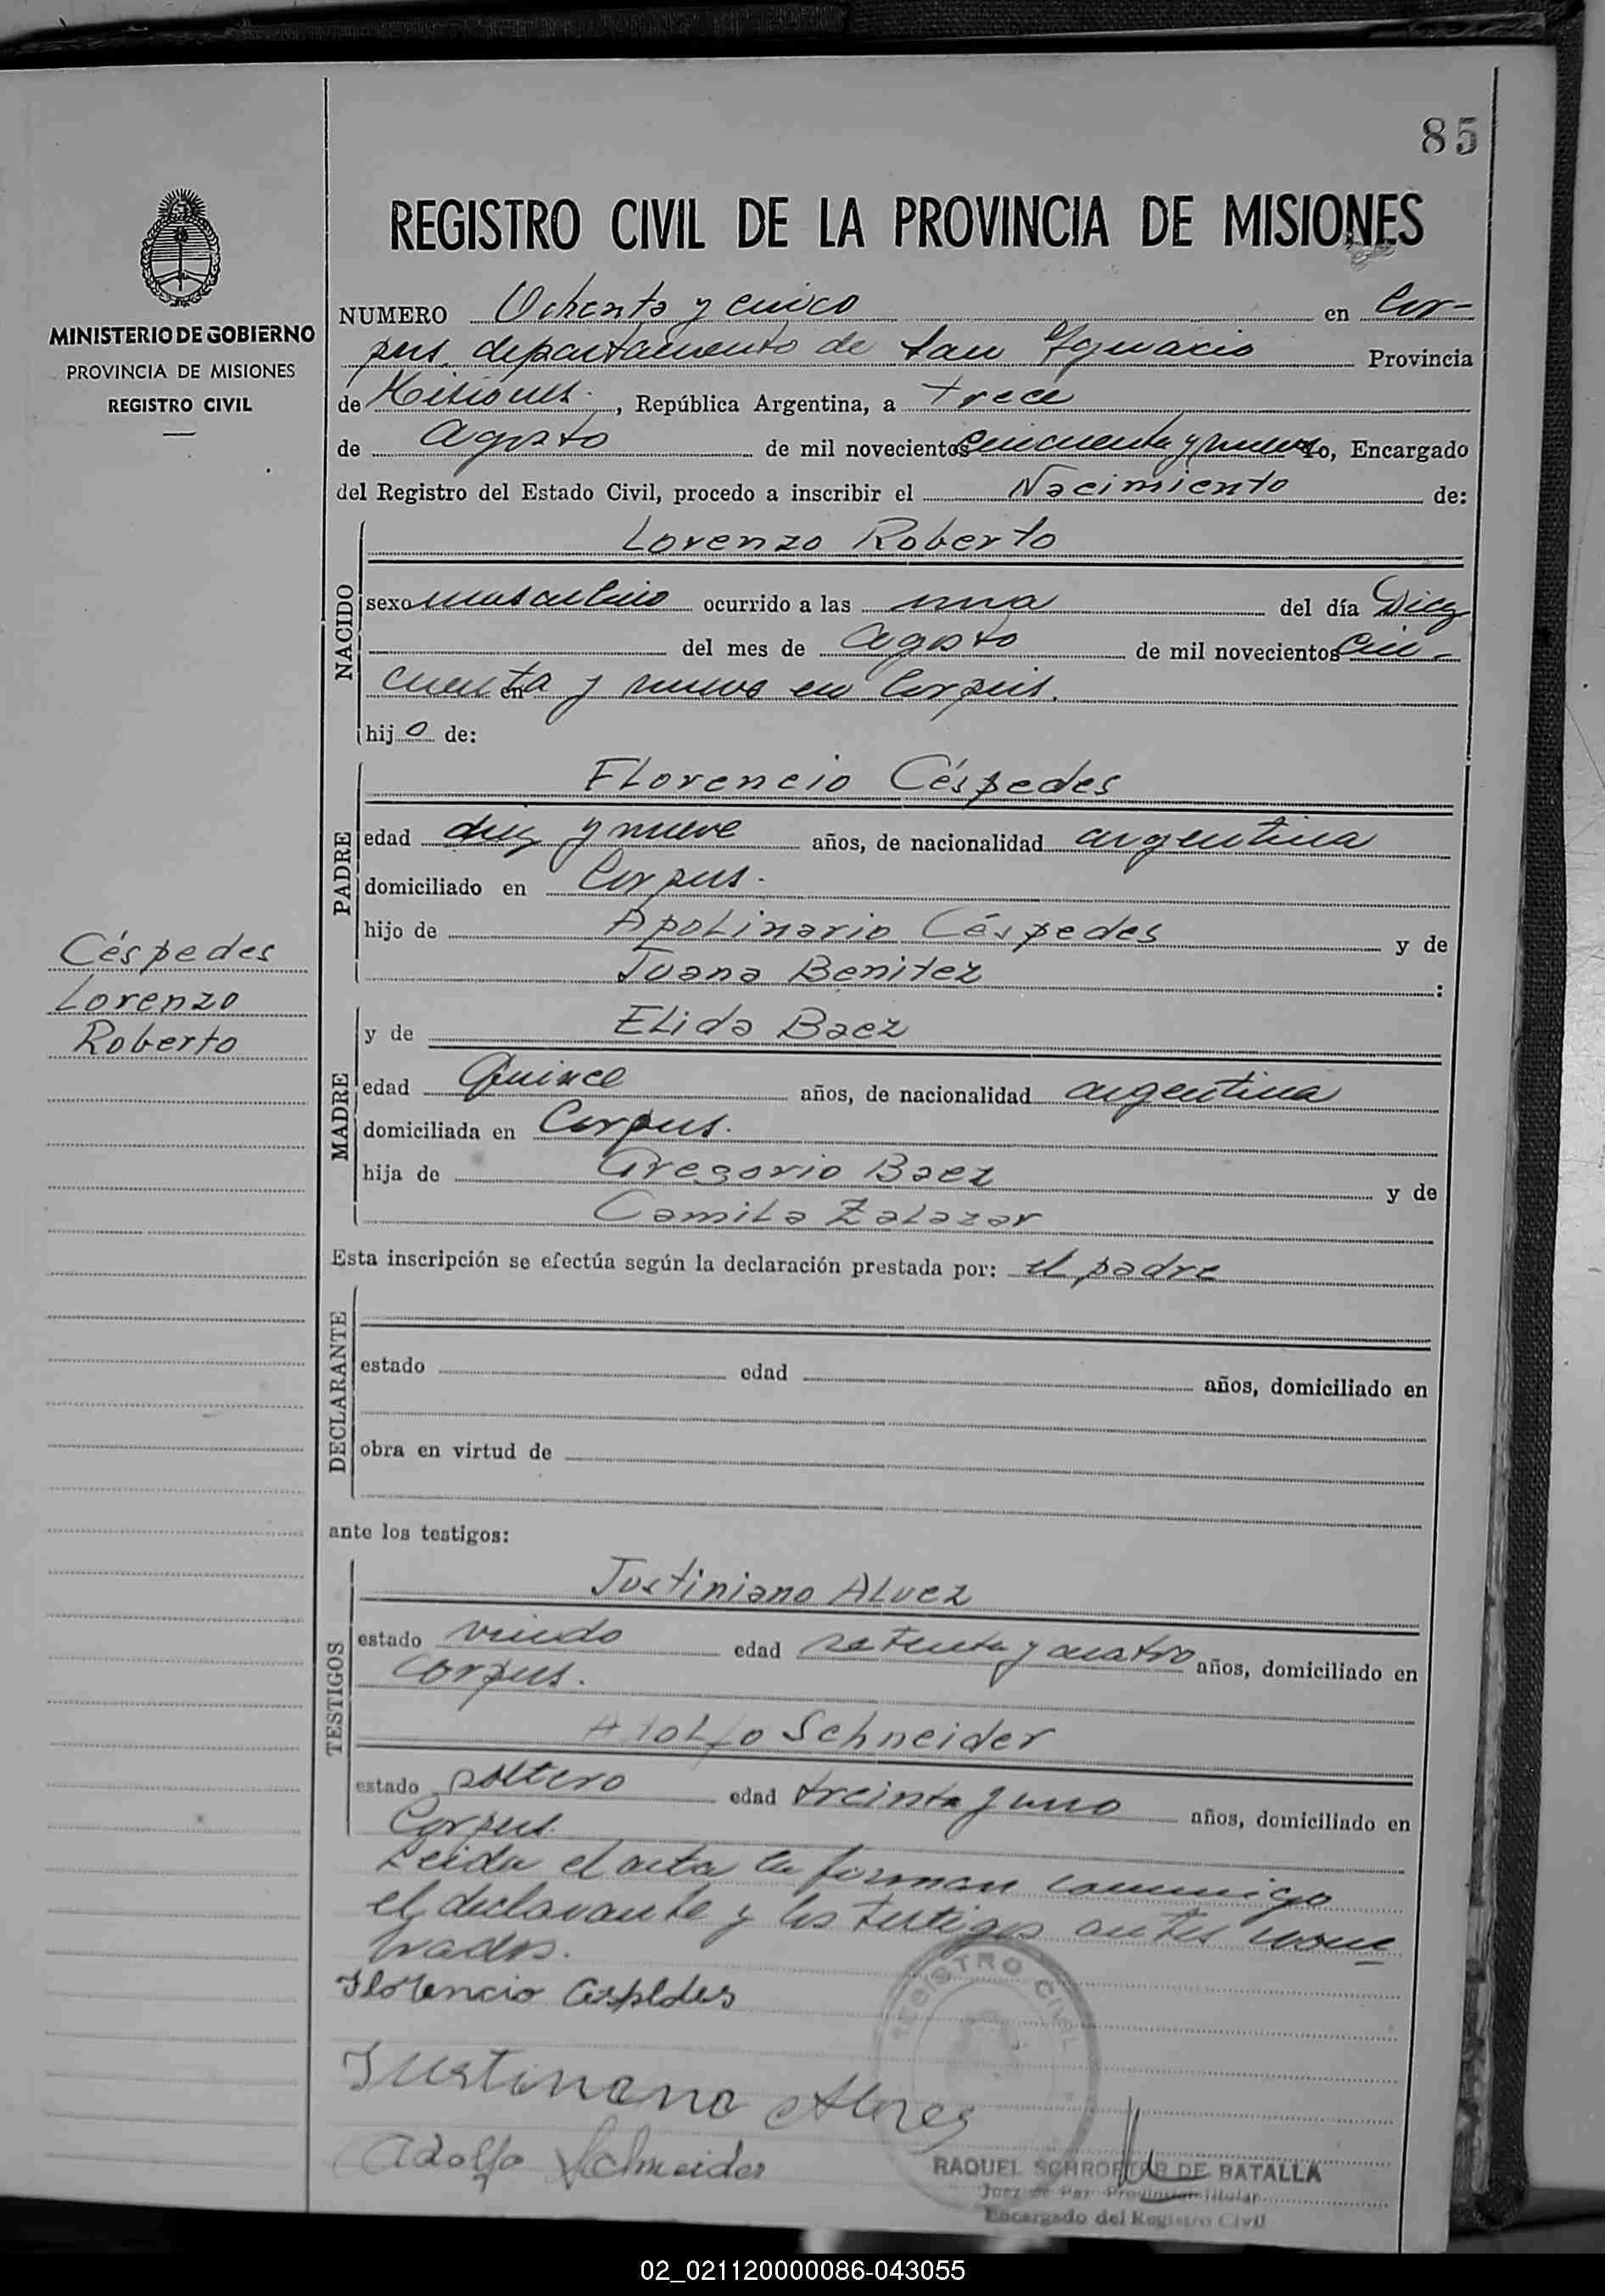 85
REGISTRO CIVIL DE LA PROVINCIA DE MISIONES
MINISTERIO DE GOBIERNO
PROVINCIA DE MISIONES
REGISTRO CIVIL
NUMERO Ochenta y cinco en Cor-
pus, departamento de San Ygnacio Provincia
de Misiones. , República Argentina, a trece
de agosto de mil novecientos cincuenta y nueve yo, Encargado
del Registro del Estado Civil, procedo a inscribir el Nacimiento de:
Lorenzo Roberto
NACIDO
sexo masculino ocurrido a las una del día Diez
del mes de agosto de mil novecientos cin-
cuenta y nueve en Corpus.
en
hijo de:
Florencio Céspedes
PADRE
edad diez y nueve años, de nacionalidad argentina
domiciliado en Corpus.
hijo de Apolinario Céspedes y de
Juana Benitez :
Céspedes
Lorenzo
Roberto
y de Elida Baez
MADRE
edad Quince años, de nacionalidad argentina
domiciliada en Corpus.
hija de Gregorio Baez y de
Camila Zalazar
Esta inscripción se efectúa según la declaración prestada por: el padre
DECLARANTE
estado edad años, domiciliado en
obra en virtud de
ante los testigos:
TESTIGOS
Justiniano Alvez
estado viudo edad setenta y cuatro años, domiciliado en
Corpus.
Adolfo Schneider
estado soltero edad treinta y uno años, domiciliado en
Corpus.
Leida el acta la firman conmigo
el declarante y los testigos antes nom-
brados.
Florencio Cespedes
REGISTRO CIVIL
Justinano Alves
Adolfo Schneider
RAQUEL SCHROEDER DE BATALLA
Juez de Paz Provincial Titular
Encargado del Registro Civil
02_021120000086-043055